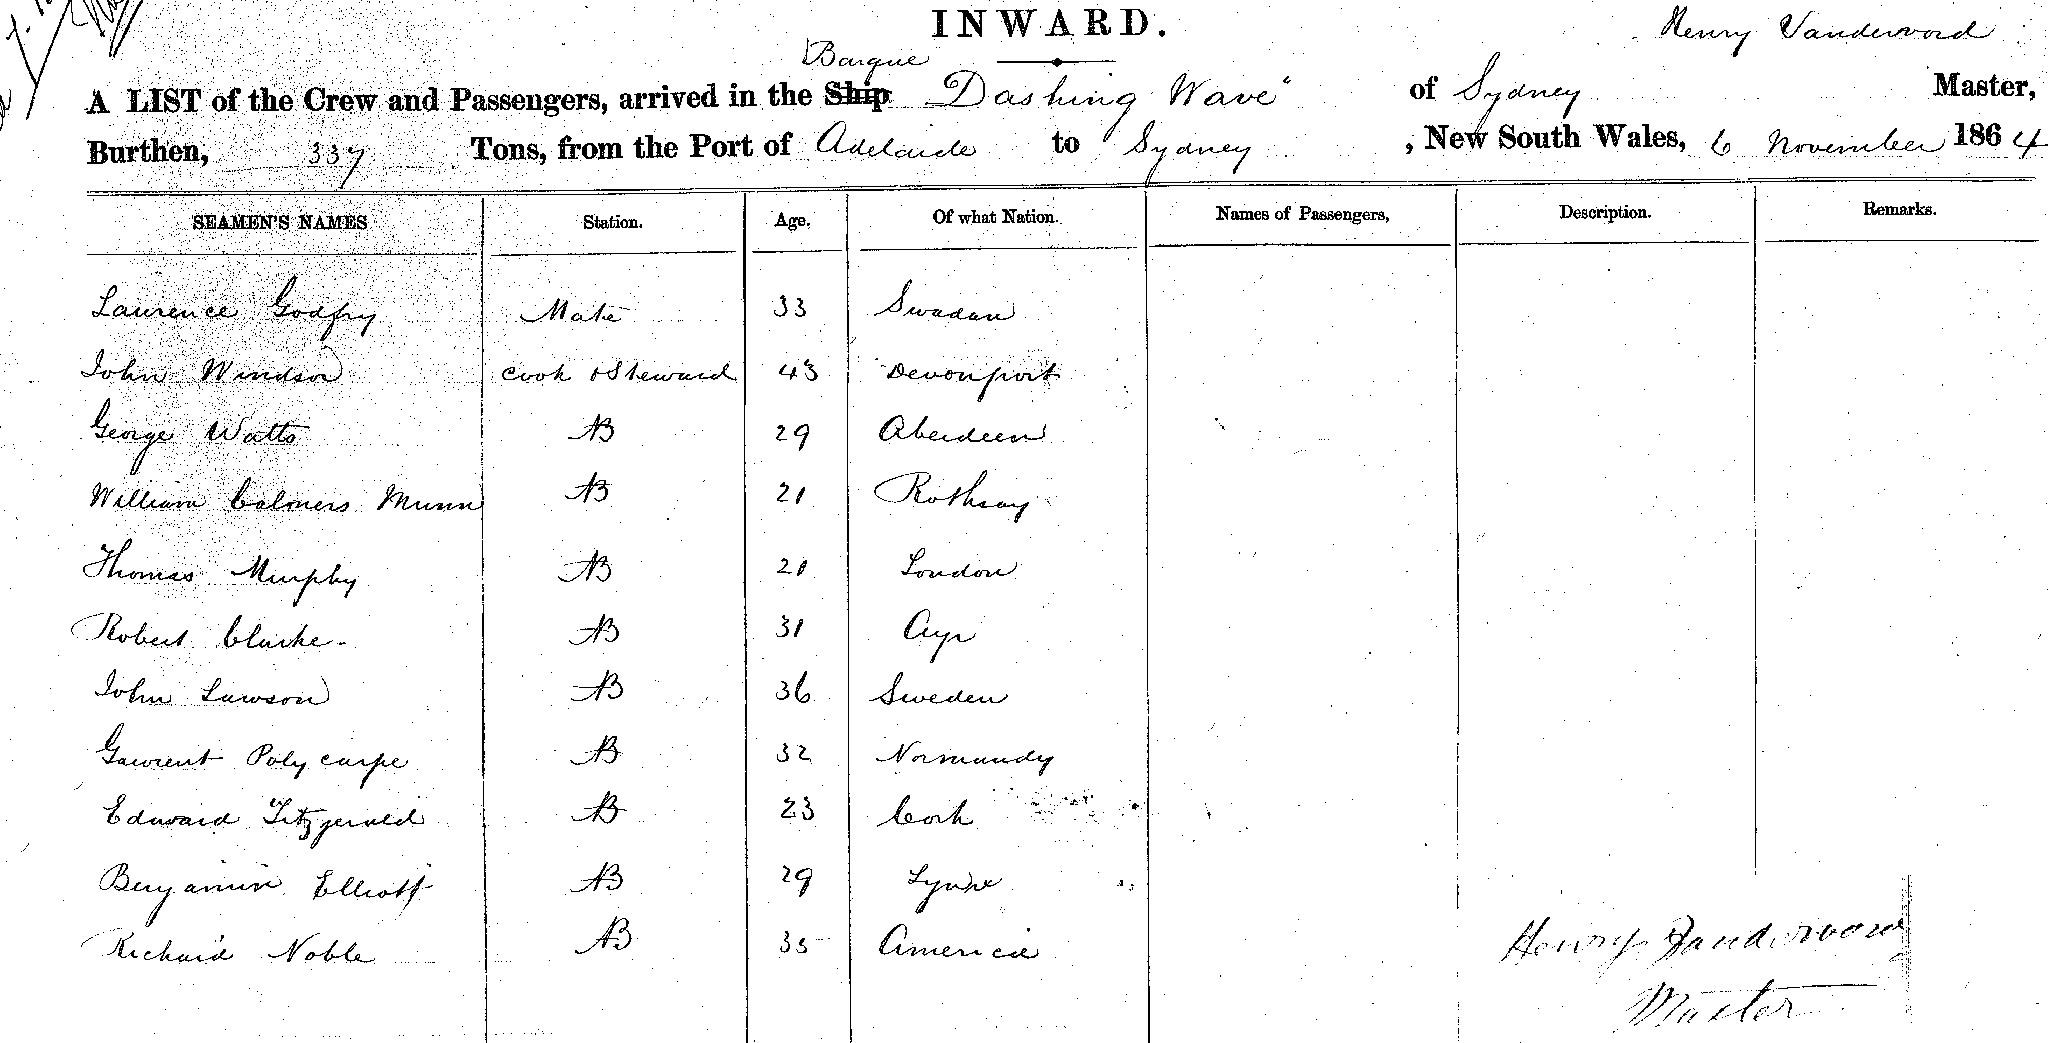 INWARD.
Henry Vanderword
Barque
A LIST of the Crew and Passengers, arrived in the Ship "Dashing Wave" of Sydney Master,
Burthen, 337 Tons, from the Port of Adelaide to Sydney, New South Wales, 6 November 1864
SEAMEN'S NAMES Station. Age. Of what Nation. Names of Passengers, Description. Remarks.
Laurence Godfry Mate 33 Swadan
John Windsor Cook & Steward 43 Devonport
George Watts AB 29 Aberdeen
William Calmers Munn AB 21 Rothsay
Thomas Murphy AB 21 London
Robert Clarke AB 31 Ayr
John Lawson AB 36 Sweden
Gawrent Polycarpe AB 32 Normandy
Edward Fitzgerald AB 23 Cork
Benjamin Elliott AB 29 Lynne
Richard Noble AB 35 America
Henry Vanderword
Master